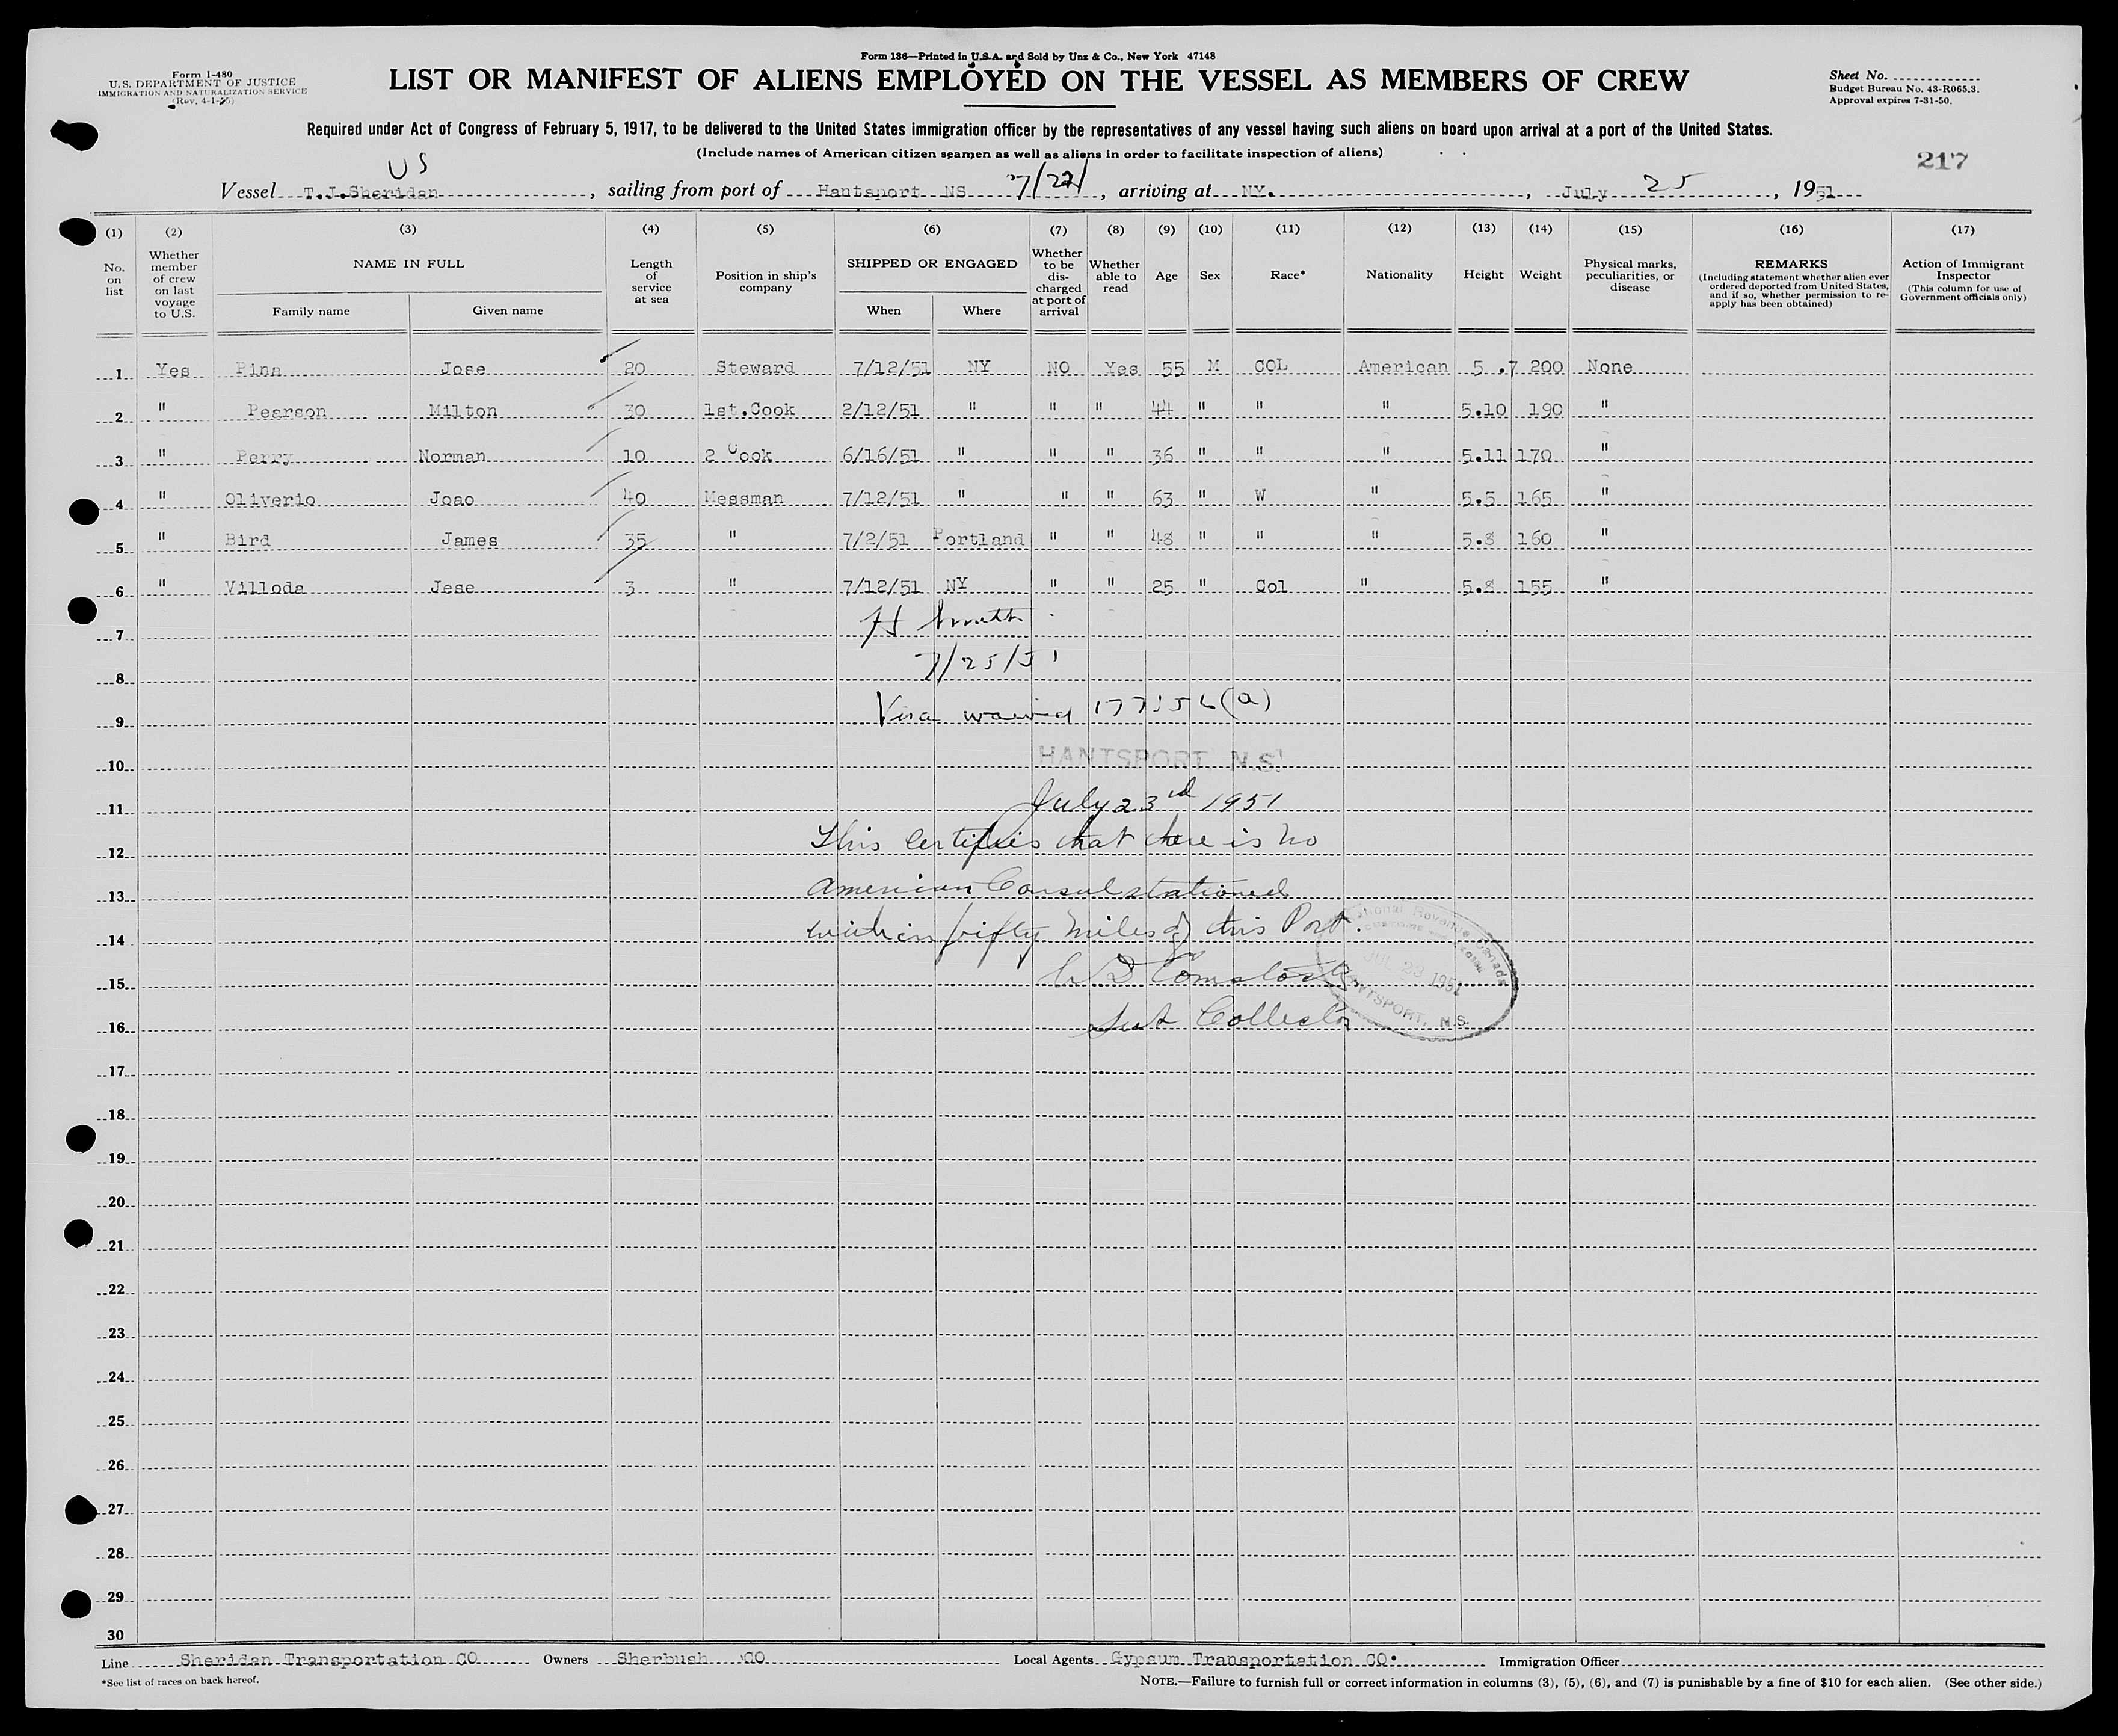 Form 136—Printed in U.S.A. and Sold by Unz & Co., New York 47148
Form I-480
U.S. DEPARTMENT OF JUSTICE
IMMIGRATION AND NATURALIZATION SERVICE
(Rev. 4-1-45)
LIST OR MANIFEST OF ALIENS EMPLOYED ON THE VESSEL AS MEMBERS OF CREW
Sheet No.
Budget Bureau No. 43-R065.3.
Approval expires 7-31-50.
Required under Act of Congress of February 5, 1917, to be delivered to the United States immigration officer by the representatives of any vessel having such aliens on board upon arrival at a port of the United States.
(Include names of American citizen seamen as well as aliens in order to facilitate inspection of aliens)
217
US
Vessel T.J.Sheridan, sailing from port of Hantsport NS 7/22/, arriving at NY., July 25, 1951
(1) (2) (3) (4) (5) (6) (7) (8) (9) (10) (11) (12) (13) (14) (15) (16) (17)
No. on list
Whether member of crew on last voyage to U.S.
NAME IN FULL
Family name Given name
Length of service at sea
Position in ship's company
SHIPPED OR ENGAGED
When Where
Whether to be discharged at port of arrival
Whether able to read
Age
Sex
Race*
Nationality
Height
Weight
Physical marks, peculiarities, or disease
REMARKS
(Including statement whether alien ever ordered deported from United States, and if so, whether permission to re-apply has been obtained)
Action of Immigrant Inspector
(This column for use of Government officials only)
1 Yes Pina Jose 20 Steward 7/12/51 NY NO Yes 55 M COL American 5.7 200 None
2 " Pearson Milton 30 1st.Cook 2/12/51 " " " 44 " " " 5.10 190 "
3 " Perry Norman 10 2 Cook 6/16/51 " " " 36 " " " 5.11 170 "
4 " Oliverio Joao 40 Messman 7/12/51 " " " 63 " W " 5.5 165 "
5 " Bird James 35 " 7/2/51 Portland " " 48 " " " 5.8 160 "
6 " Villoda Jese 3 " 7/12/51 NY " " 25 " Col " 5.8 155 "
7
7/25/51
8
Visa waived (a)
9
HANTSPORT, N.S.
10
July 23rd 1951
11
This certifies that there is no
12
American Consul stationed
13
within fifty miles of this Port.
14
Comstock
15
Sub Collector
16
National Revenue Canada
JUL 23 1951
HANTSPORT, N.S.
17
18
19
20
21
22
23
24
25
26
27
28
29
30
Line Sheridan Transportation CO Owners Sherbush CO Local Agents Gypsum Transportation CO. Immigration Officer
*See list of races on back hereof.
NOTE.—Failure to furnish full or correct information in columns (3), (5), (6), and (7) is punishable by a fine of $10 for each alien. (See other side.)